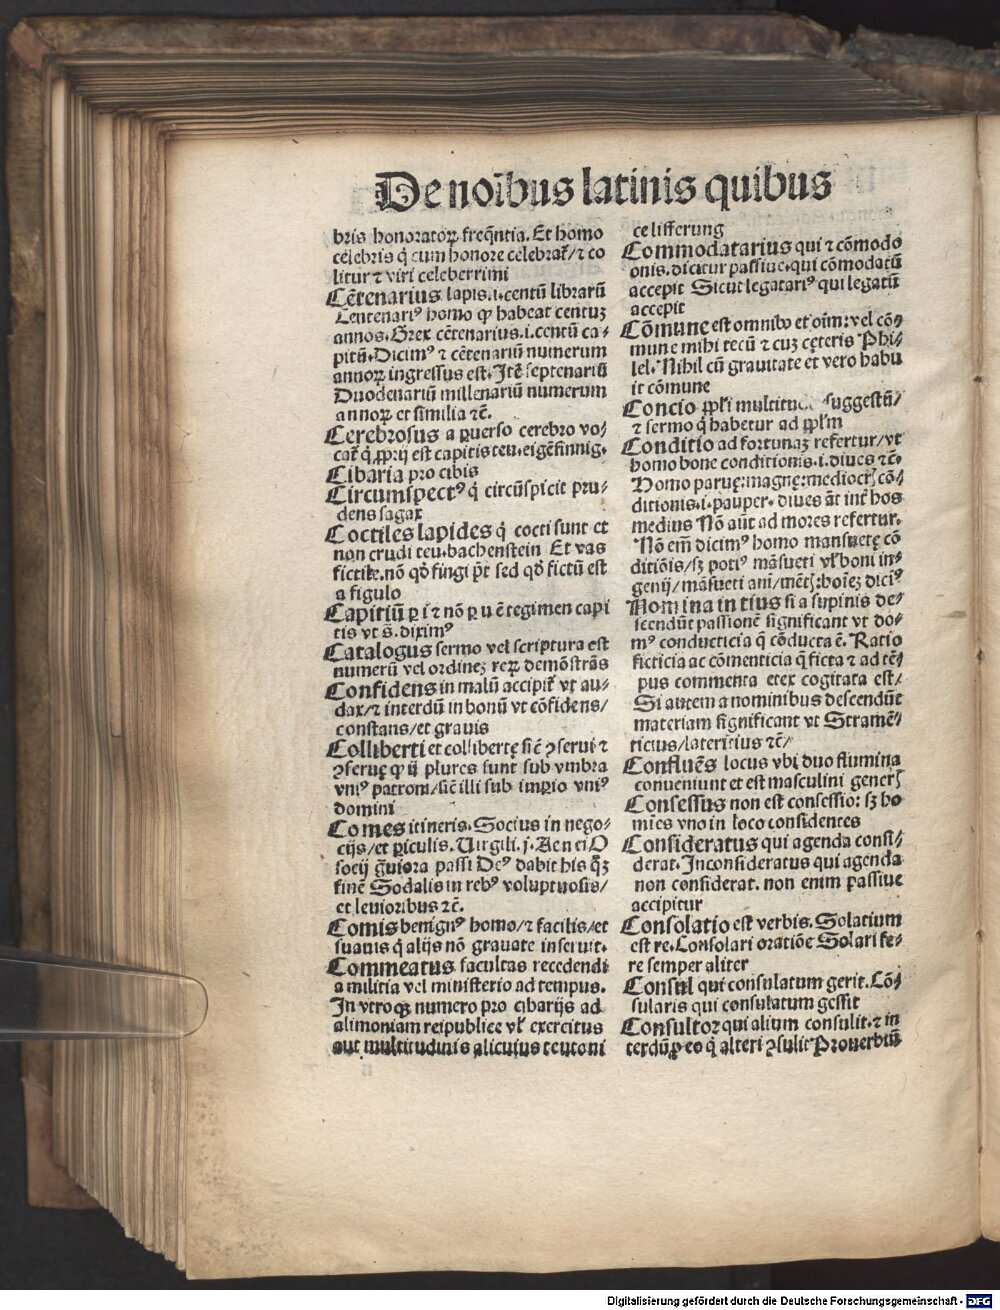 De noībus latinis quibus
bris honoratoꝝ freq̄ntia. Et homo
celebris q̇ cum honore celebrat̄/ ⁊ co
litur ⁊ viri celeberrimi
Cētenarius lapis .i. centū librarū
Centenariꝰ homo qͥ habeat centuꝫ
annos. Grex cētenarius .i. centū ca-
pitū. Dicimꝰ ⁊ cētenariū numerum
annoꝝ ingressus est. Itē septenariū
Duodenariū millenariū numerum
annoꝝ et similia ⁊c̄.
Cerebrosus a ꝑuerso cerebro vo/
cat̄ q̇ ꝓprij est capitis teu. eigēsinnig.
Cibaria pro cibis
Circumspectꝰ q̇ circūspicit pru-
dens sagax
Coctiles lapides q̇ cocti sunt et
non crudi teu. bachenstein Et vas
fictile. nō qď fingi pt̄ sed qď fictū est
a figulo
Capitiū ꝑ i ⁊ nō ꝑ u ē tegimen capi
tis vt s̄. diximꝰ
Catalogus sermo vel scriptura est
numerū vel ordineꝫ reꝝ demōstrās
Confidens in malū accipit̄ vt au-
dax/ ⁊ interdū in bonū vt cōfidens/
constans/ et grauis
Colliberti et collibertę sic̄ ꝯserui ⁊
ꝯseruę qͥ ij plures sunt sub vmbra
vniꝰ patroni/ sic̄ illi sub imꝑio vniꝰ
domini
Comes itineris. Socius in nego/
cijs/ et ꝑiculis. Uirgili. j. Aenei O
socij g̃uiora passi Deꝰ dabit his q̊ꝫ
finē Sodalis in rebꝰ voluptuosis/
et leuioribus ⁊c̄.
Comis benignꝰ homo/ ⁊ facilis/ et
suauis q̇ alijs nō grauate inseruit.
Commeatus facultas recedendi
a militia vel ministerio ad tempus.
In vtroqꝫ numero pro cibarijs ad
alimoniam reipublice vl̄ exercitus
aut multitudinis alicuius teutoni
ce lifferung
Commodatarius qui ⁊ cōmodo
onis. dicitur passiue. qui cōmodatū
accepit Sicut legatariꝰ qui legatū
accepit
Cōmune est omnibꝰ et oīm: vel cō/
mune mihi tecū ⁊ cuꝫ cęteris Phi/
lel. Nihil cū grauitate et vero habu
it cōmune
Concio ꝓpl̄i multitu suggestū/
⁊ sermo q̇ habetur ad ꝓpl̄m
Conditio ad fortunaꝫ refertur/ vt
homo bone conditionis .i. diues ⁊c̄.
Homo paruę: magnę: mediocrꝭ cō/
ditionis .i. pauper. diues āt int̄ hos
medius Nō aūt ad mores refertur.
Nō em̄ dicimꝰ homo mansuetę cō
ditiōis/ sꝫ potiꝰ māsueti vl̄ boni in/
genij/ māsueti ani/ mētꝭ: boīeꝫ diciꝰ
Nomina in tius si a supinis de/
scendūt passionē significant vt do/
mꝰ conducticia q̄ cōducta ē. Ratio
ficticia ac cōmenticia q̄ ficta ⁊ ad tē/
pus commenta et ex cogitata est/
Si autem a nominibus descendūt
materiam significant vt Stramē/
ticius/ latericius ⁊c̄/
Confluēs locus vbi duo flumina
conueniunt et est masculini generꝭ
Consessus non est confessio: sꝫ ho
mīes vno in loco considentes
Consideratus qui agenda consi/
derat. Inconsideratus qui agenda
non considerat. non enim passiue
accipitur
Consolatio est verbis. Solatium
est re. Consolari oratiōe Solari fe/
re semper aliter
Consul qui consulatum gerit. Cō/
sularis qui consulatum gessit
Consultor qui alium consulit. ⁊ in
terdū ꝓ eo q̇ alteri ꝯsulit Prouerbiū
Digitalisierung gefördert durch die Deutsche Forschungsgemeinschaft - DFG